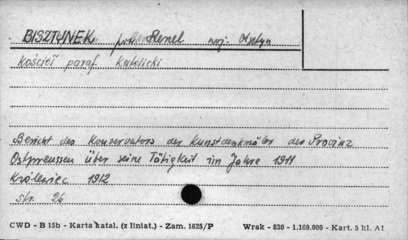 BISZTYNEK pow. Reszel woj. Olsztyn
Kościół paraf. katolicki
Bericht des Konservators der Kunstdenkmäler der Provinz
Ostpreussen über seine Tätigkeit im Jahre 1911
Królewiec 1912
str. 26
CWD - B 15b - Karta katal. (z liniat.) - Zam. 1625/P Wrak - 830 - 1.169.000 - Kart. 5 kl. A1